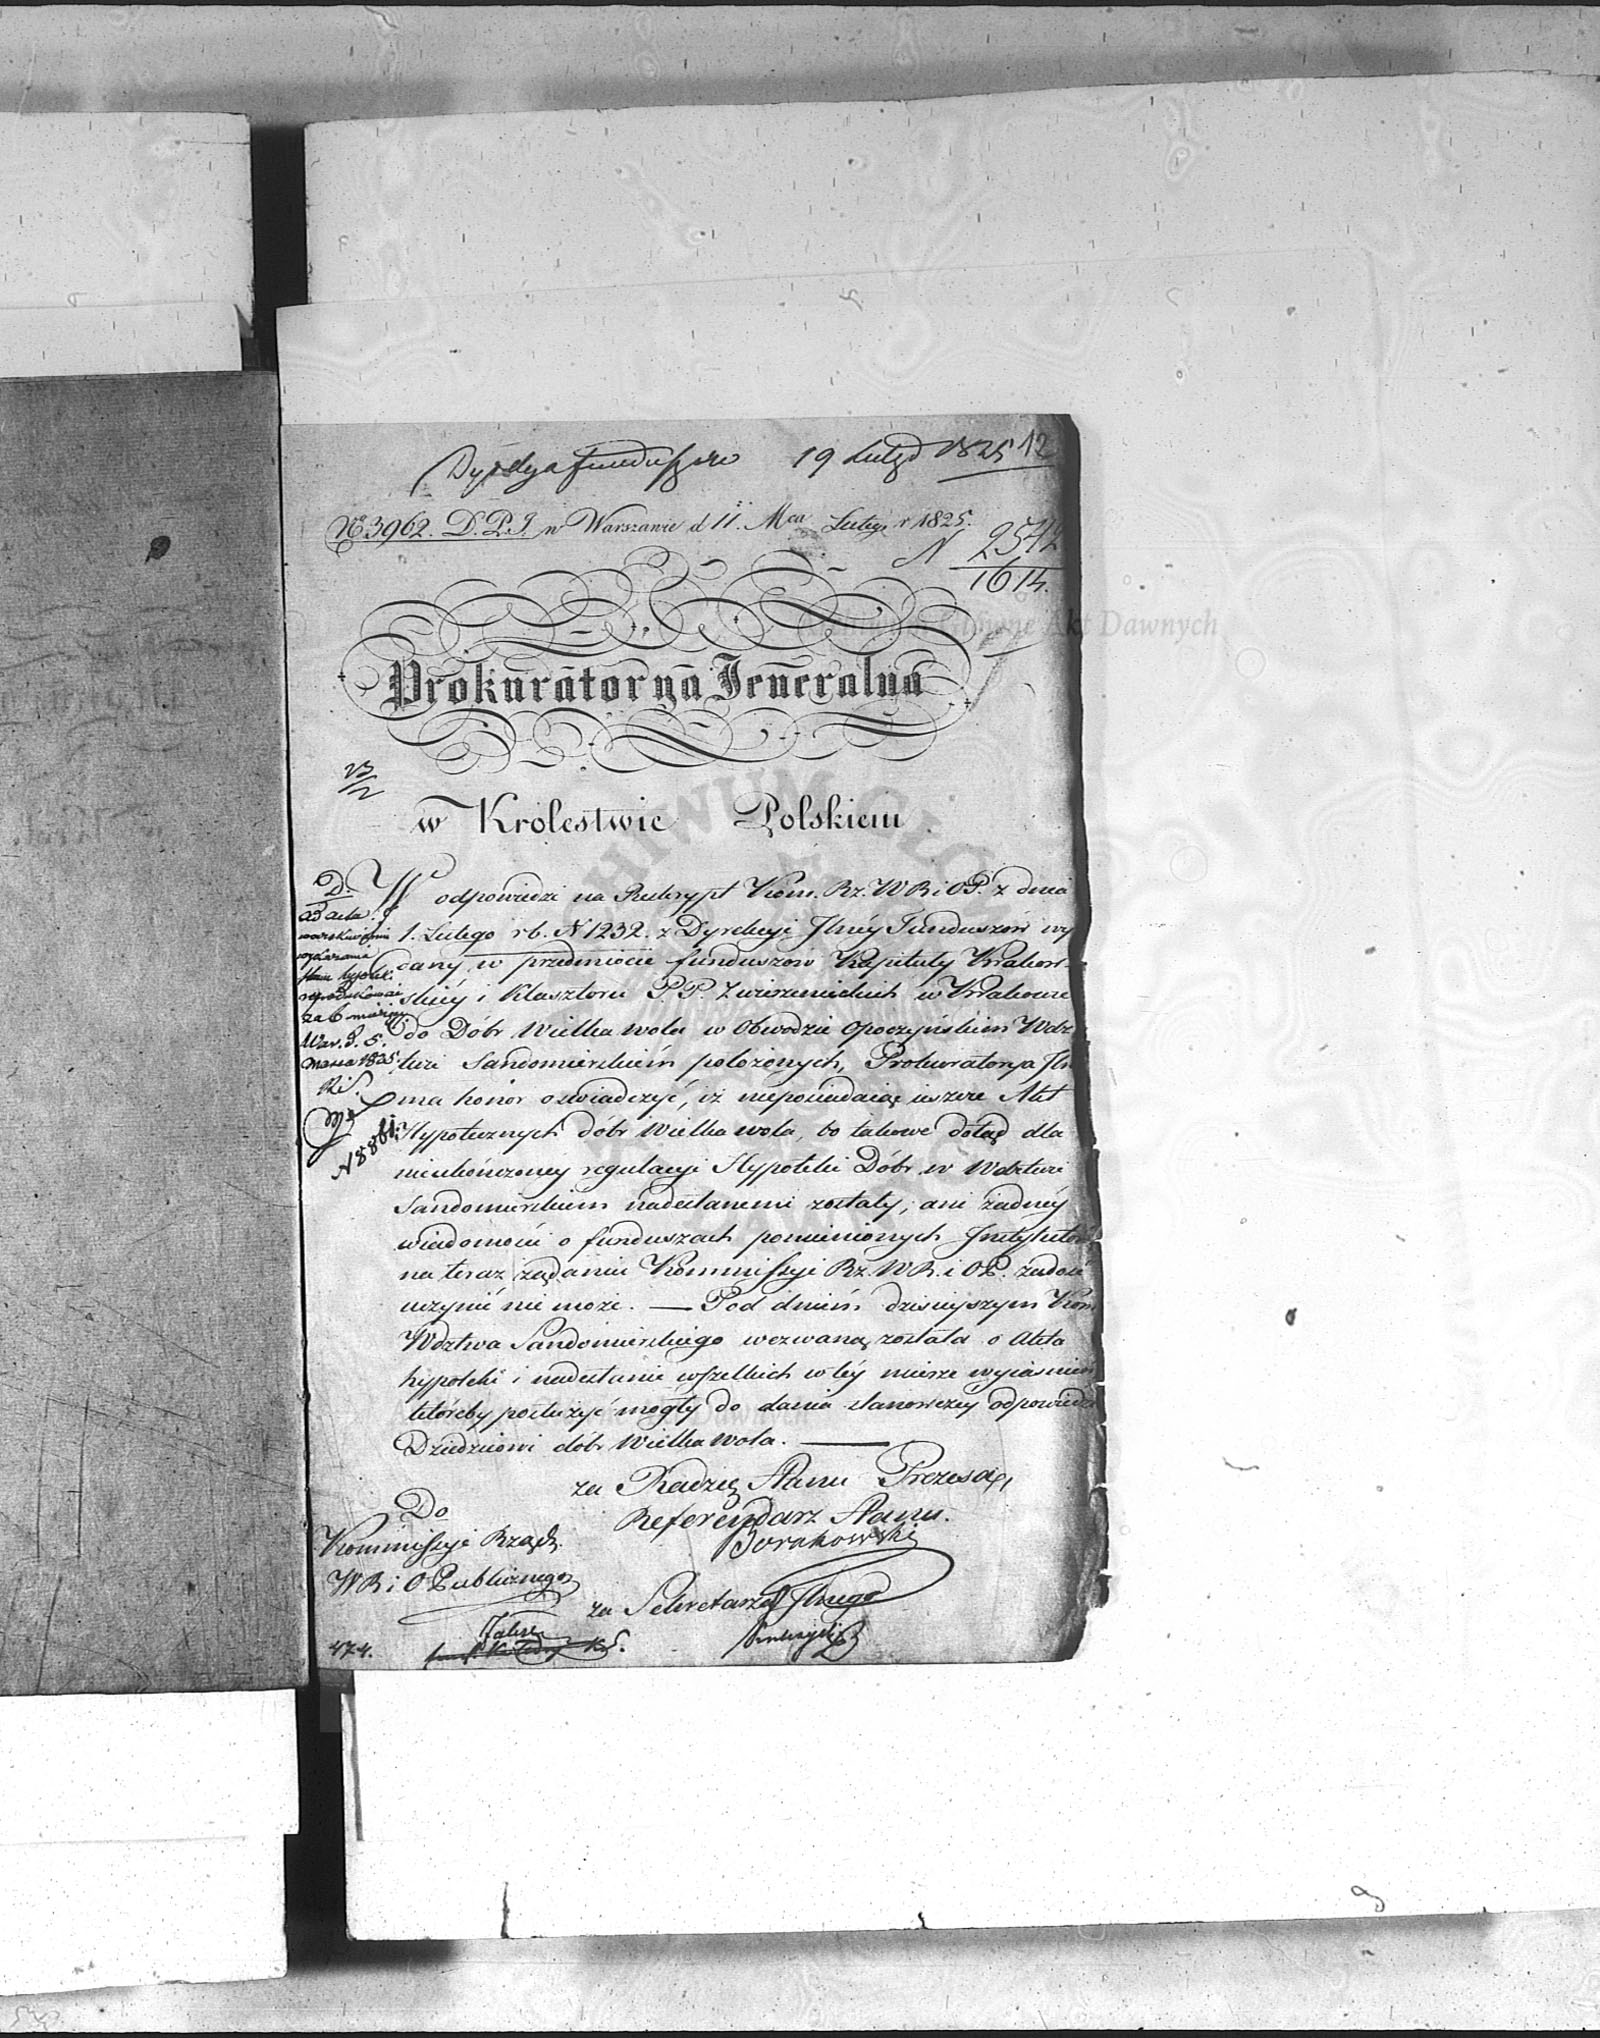 Dyrekcya funduszow 19 Lutego 1825 12
No 3962. D.P.J. w Warszawie d 11. Mca Lutego r 1825.
N 2542
1614.
Prokuratorya Jeneralna
23/2
w Królestwie Polskiem
W odpowiedzi na Reskrypt Kom. Rz. W R i O P. z dnia
1. Lutego r b. N 1232. z Dyrekcyi Jlnéy Funduszów wy
dany, w przedmiocie funduszow Kapituły Krakow-
skiéy i Klasztoru P. P. Zwierzenieckich w Krakowie
do Dóbr Wielka wola w Obwodzie Opoczyńskim Wdz
twie Sandomierskiém położonych, Prokuratorya Jln
ma honor oswiadczyć, iż nieposiadaiąc ieszcze Akt
Hypotecznych dóbr Wielka wola, bo takowe dotąd dla
nieukończoney regulacyi Hypoteki Dóbr w Wdztwie
Sandomierskiem nadesłanemi zostały, ani żadnéy
wiadomości o funduszach pomienionych Jnstytutów
na teraz żądaniu Kommissyi Rz. W R. i O P. zadość
uczynić nie może. — Pod dniem dzisieyszym Kom
Wdztwa Sandomierskiego wezwaną została o Akta
hypoteki i nadesłanie wszelkich w téy mierze wyiaśnień
któreby posłużyć mogły do dania stanowczey odpowiedzi
Dziedzicowi dóbr Wielka Wola. —
D.
ad acta
za 6 miesięcy
War. d. 5.
marca 1825.
N 8861.
za Radzcę Stanu Prezesa,
Referendarz Stanu.
Do
Kommissyi Rząd.
W R i O Publicznego
za Sekretarza Jlnego
474.